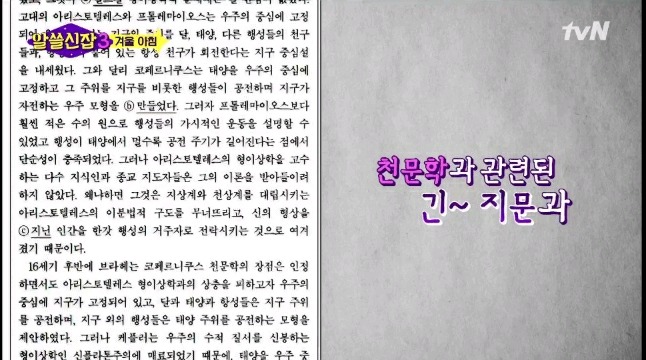 고대의 아리스토텔레스와 프톨레마이오스는 우주의 중심에 고정
달, 태양, 다른 행성들의 천구
들과, 붙어 있는 항성 천구가 회전한다는 지구 중심설
을 내세웠다. 그와 달리 코페르니쿠스는 태양을 우주의 중심에
고정하고 그 주위를 지구를 비롯한 행성들이 공전하며 지구가
자전하는 우주 모형을 ⓑ 만들었다. 그러자 프톨레마이오스보다
훨씬 적은 수의 원으로 행성들의 가시적인 운동을 설명할 수
있었고 행성이 태양에서 멀수록 공전 주기가 길어진다는 점에서
단순성이 충족되었다. 그러나 아리스토텔레스의 형이상학을 고수
하는 다수 지식인과 종교 지도자들은 그의 이론을 받아들이려
하지 않았다. 왜냐하면 그것은 지상계와 천상계를 대립시키는
아리스토텔레스의 이분법적 구도를 무너뜨리고, 신의 형상을
ⓒ 지닌 인간을 한갓 행성의 거주자로 전락시키는 것으로 여겨
졌기 때문이다.
16세기 후반에 브라헤는 코페르니쿠스 천문학의 장점은 인정
하면서도 아리스토텔레스 형이상학과의 상충을 피하고자 우주의
중심에 지구가 고정되어 있고, 달과 태양과 항성들은 지구 주위
를 공전하며, 지구 외의 행성들은 태양 주위를 공전하는 모형을
제안하였다. 그러나 케플러는 우주의 수적 질서를 신봉하는
형이상학인 신플라톤주의에 매료되었기 때문에, 태양을 우주 중
알쓸신잡3 겨울 아침
tvN
천문학과 관련된
긴~ 지문과